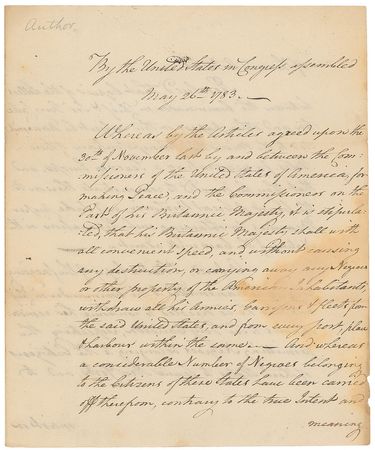 Author.
By the United States in Congress assembled
May 26th 1783. —
Whereas by the Articles agreed upon the
30th of November last by and between the Com-
missioners of the United States of America, for
making Peace, and the Commissioners on the
Part of his Britannic Majesty, it is stipula-
ted, that his Britannic Majesty shall with
all convenient speed, and without causing
any destruction, or carrying away any Negroes
or other property of the American Inhabitants,
withdraw all his Armies, Garrisons & fleets from
the said United States, and from every port, place
& harbour within the same — And whereas
a considerable Number of Negroes belonging
to the Citizens of these States have been carried
off therefrom, contrary to the true Intent and
meaning